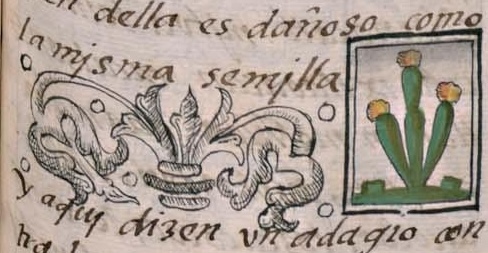 en della es dañoso como
la misma semilla
y aquy dizen vn adagio con